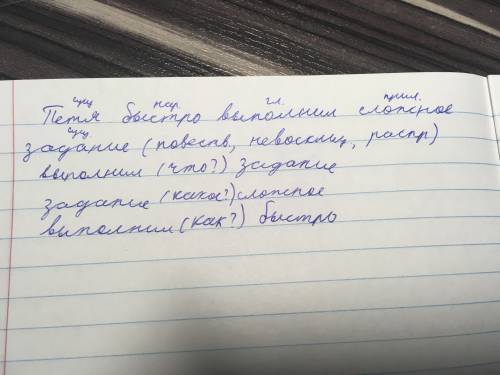 сущ. нар. гл. прил.
Петя быстро выполнил сложное
сущ.
задание (повеств, невосклиц, распр)
выполнил (что?) задание
задание (какое?) сложное
выполнил (как?) быстро